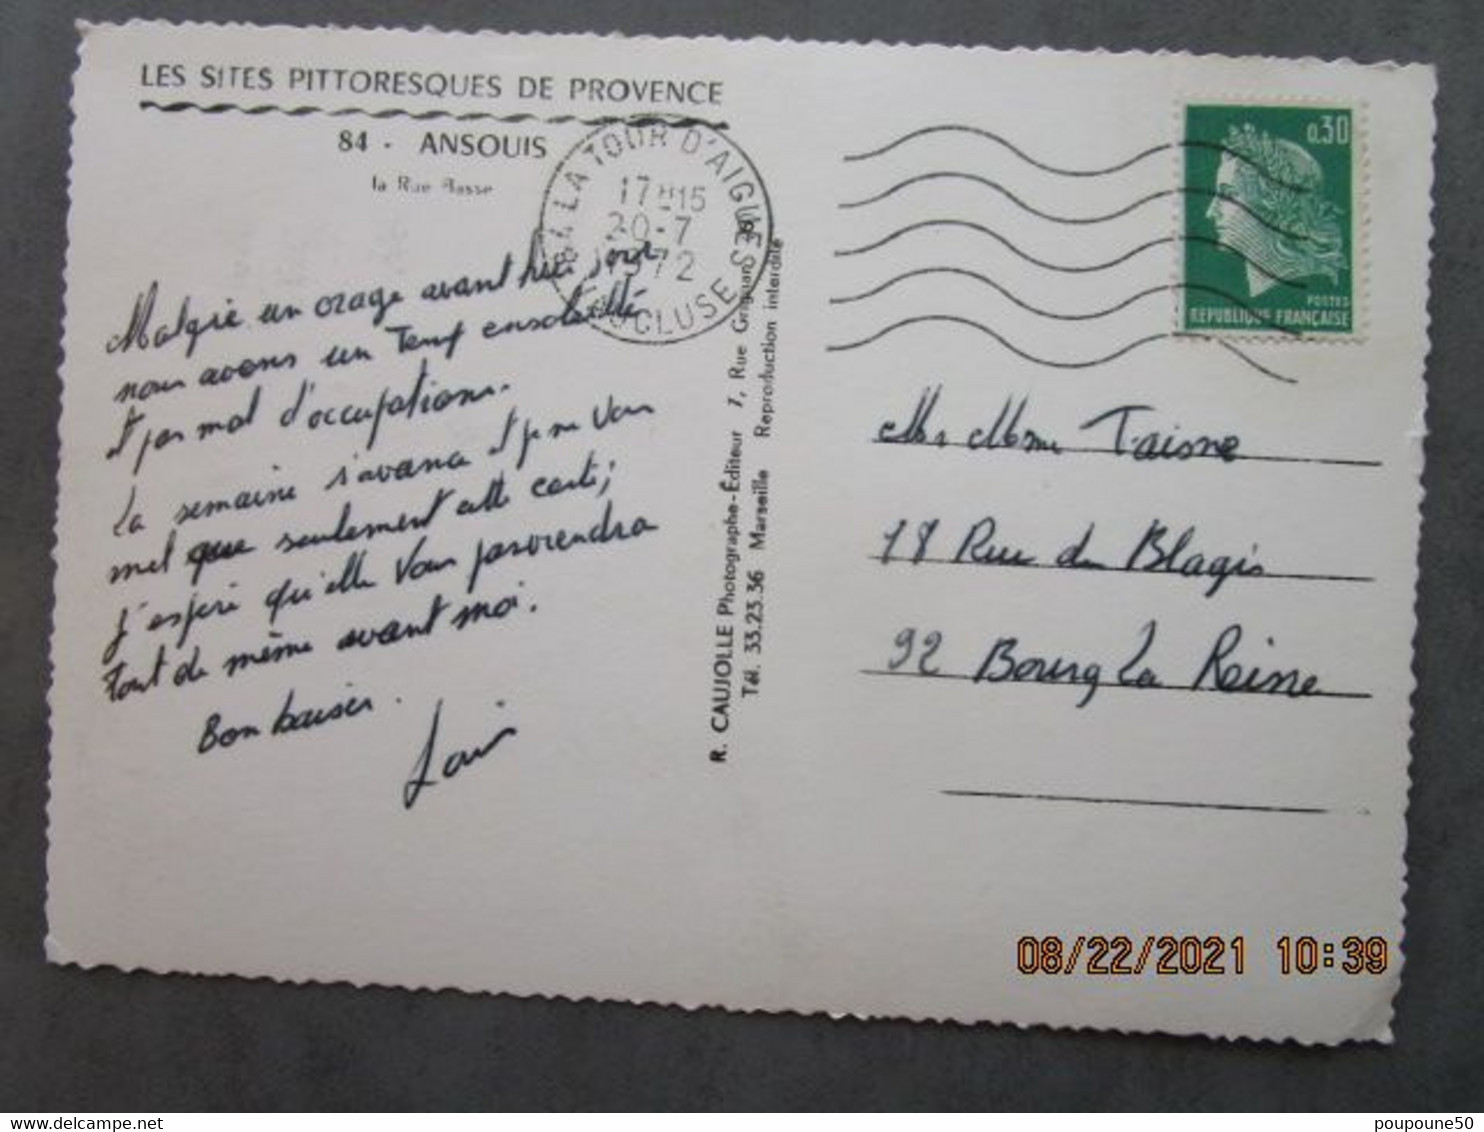 LES SITES PITTORESQUES DE PROVENCE
84 - ANSOUIS
la Rue Basse
84 LA TOUR D'AIGUES
17H15
20-7
1972
VAUCLUSE
0,30
POSTES
REPUBLIQUE FRANÇAISE
Malgré un orage avant hier soir
nous avons un temps ensoleillé
et pas mal d'occupations.
La semaine s'avance et je ne vous
met que seulement cette carte;
J'espère qu'elle vous parviendra
tout de même avant moi.
Bon baiser.
R. CAUJOLLE Photographe-Éditeur 7, Rue Grignan
Tél. 33.23.36 Marseille Reproduction interdite
Mr Mme Taisne
18 Rue des Blagis
92 Bourg La Reine
08/22/2021 10:39
poupoune50